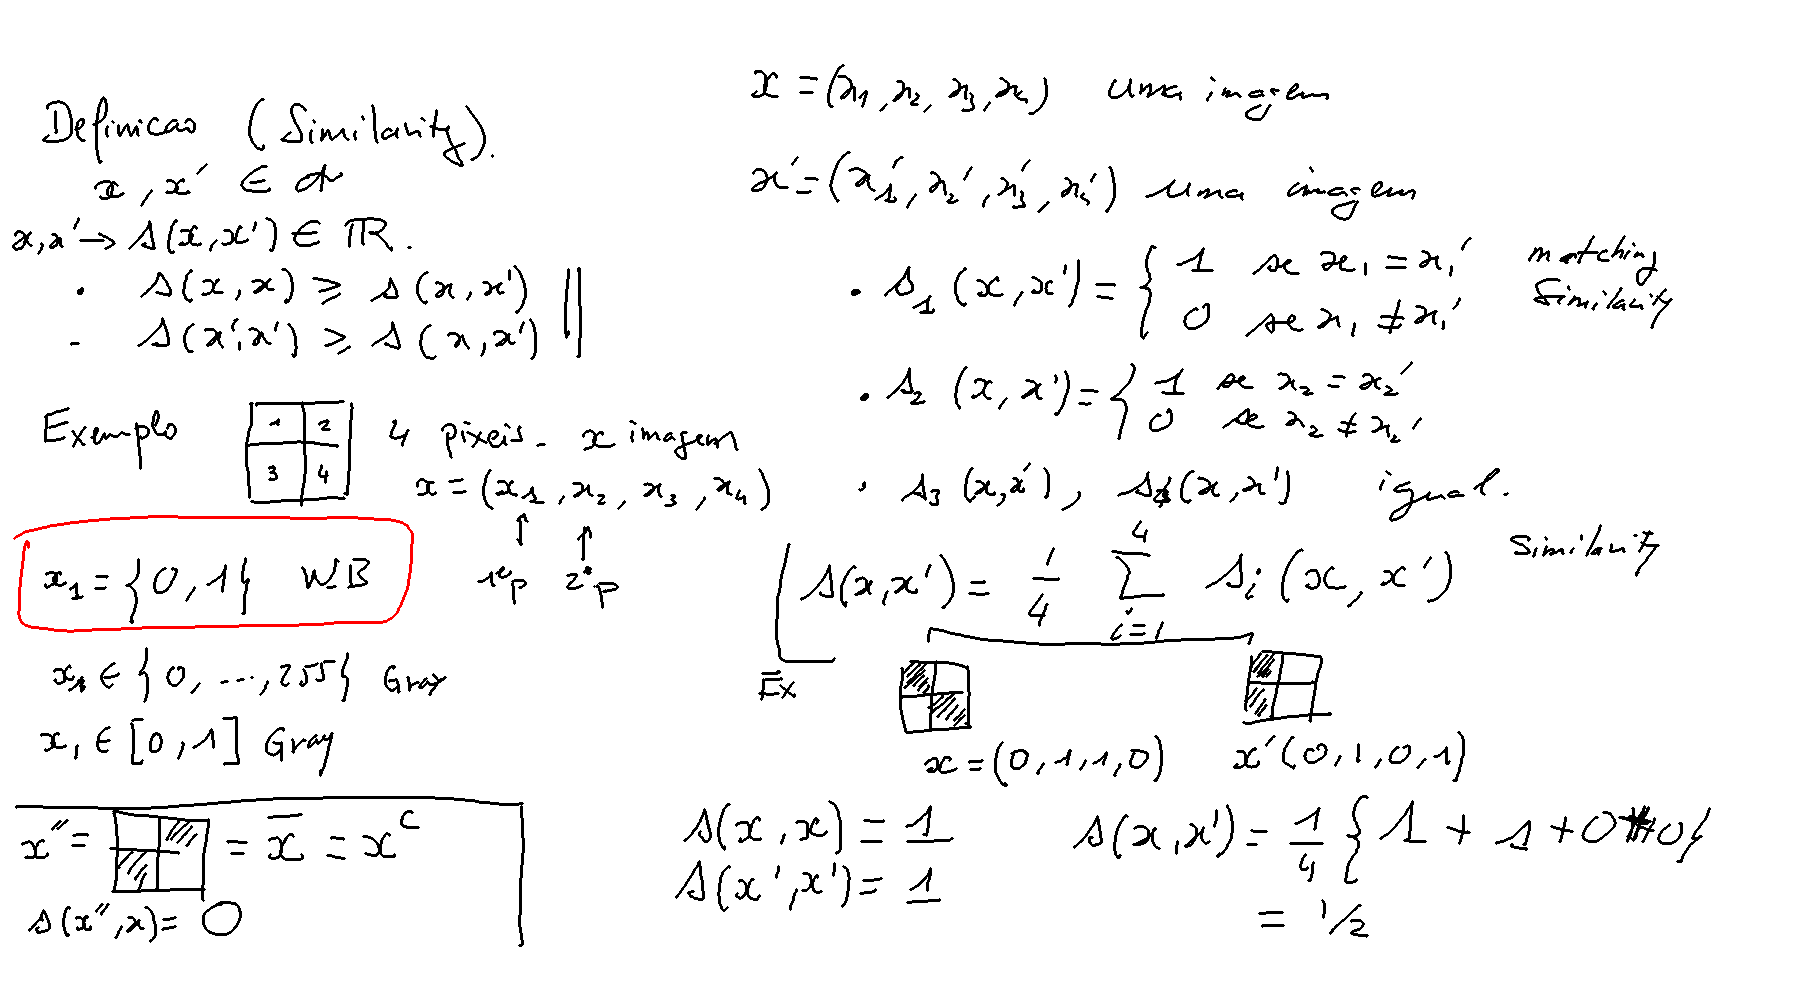 Definicao (Similarity).
x, x' ∈ 𝒳
x, x' → s(x, x') ∈ ℝ.
• s(x, x) ⩾ s(x, x')
- s(x', x') ⩾ s(x, x')
Exemplo
1 2
3 4
4 pixeis - x imagem
x = (x1, x2, x3, x4)
↑ ↑
1º p 2º p
x1 = {0, 1} WB
x1 ∈ {0, ..., 255} Gray
x1 ∈ [0, 1] Gray
x'' = = x̅ = x^c
s(x'', x) = 0
x = (x1, x2, x3, x4) uma imagem
x' = (x1', x2', x3', x4') uma imagem
• s1 (x, x') = { 1 se x1 = x1'
0 se x1 ≠ x1'
matching
Similarity
• s2 (x, x') = { 1 se x2 = x2'
0 se x2 ≠ x2'
• s3 (x, x'), s4 (x, x') igual.
s(x, x') = 1/4 ∑_{i=1}^{4} si (x, x')
Similarity
Ex
x = (0, 1, 1, 0) x' (0, 1, 0, 1)
s(x, x) = 1
s(x', x') = 1
s(x, x') = 1/4 {1 + 1 + 0 + 0}
= 1/2